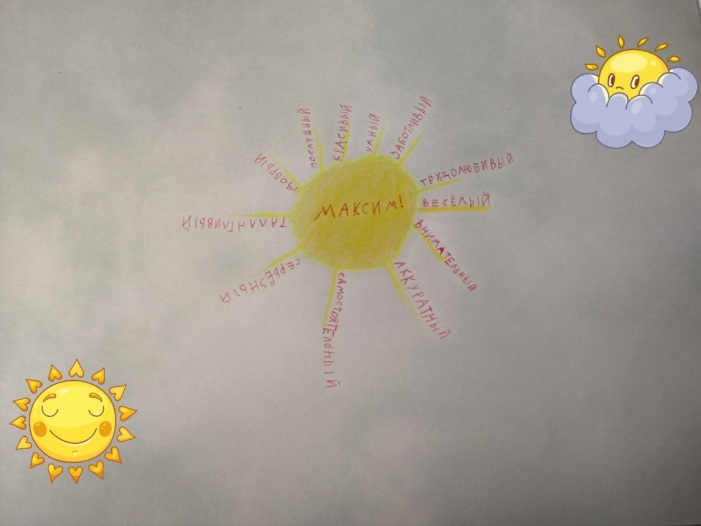 МАКСИМ!
ПОСЛУШНЫЙ
КРАСИВЫЙ
УМНЫЙ
ЗАБОТЛИВЫЙ
ТРУДОЛЮБИВЫЙ
ВЕСЁЛЫЙ
ВНИМАТЕЛЬНЫЙ
АККУРАТНЫЙ
САМОСТОЯТЕЛЬНЫЙ
СЕРЬЁЗНЫЙ
ТАЛАНТЛИВЫЙ
ДОБРЫЙ